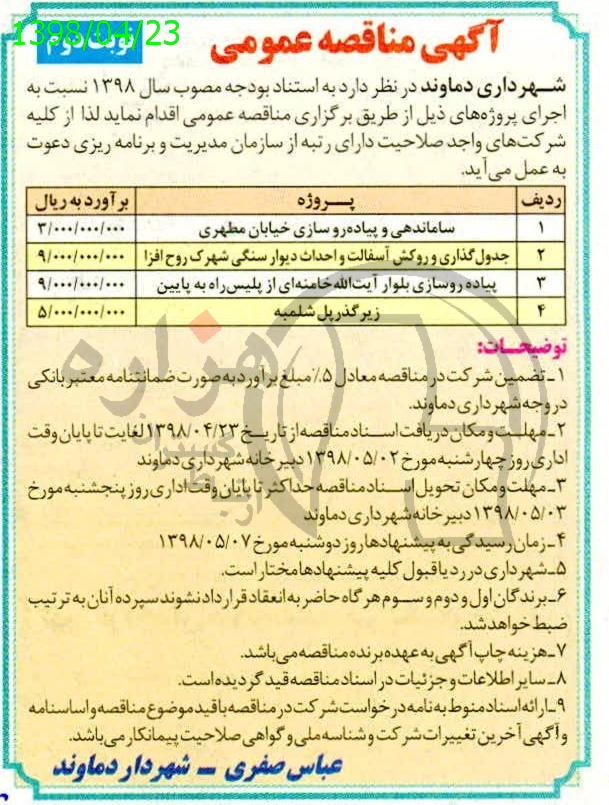 1398/04/23
آگهی مناقصه عمومی
نوبت دوم
شهرداری دماوند در نظر دارد به استناد بودجه مصوب سال ۱۳۹۸ نسبت به
اجرای پروژه‌های ذیل از طریق برگزاری مناقصه عمومی اقدام نماید لذا از کلیه
شرکت‌های واجد صلاحیت دارای رتبه از سازمان مدیریت و برنامه ریزی دعوت
به عمل می‌آید.
ردیف پـــروژه برآورد به ریال
۱ ساماندهی و پیاده‌رو سازی خیابان مطهری ۳/۰۰۰/۰۰۰/۰۰۰
۲ جدول‌گذاری و روکش آسفالت و احداث دیوار سنگی شهرک روح افزا ۹/۰۰۰/۰۰۰/۰۰۰
۳ پیاده روسازی بلوار آیت‌الله خامنه‌ای از پلیس‌راه به پایین ۹/۰۰۰/۰۰۰/۰۰۰
۴ زیر گذر پل شلمبه ۵/۰۰۰/۰۰۰/۰۰۰
توضیحات:
۱ـ تضمین شرکت در مناقصه معادل ۵٪ مبلغ برآورد به صورت ضمانتنامه معتبر بانکی
در وجه شهرداری دماوند.
۲ـ مهلت و مکان دریافت اسناد مناقصه از تاریخ ۱۳۹۸/۰۴/۲۳ لغایت تا پایان وقت
اداری روز چهارشنبه مورخ ۱۳۹۸/۰۵/۰۲ دبیرخانه شهرداری دماوند
۳ـ مهلت و مکان تحویل اسناد مناقصه حداکثر تا پایان وقت اداری روز پنجشنبه مورخ
۱۳۹۸/۰۵/۰۳ دبیرخانه شهرداری دماوند
۴ـ زمان رسیدگی به پیشنهادها روز دوشنبه مورخ ۱۳۹۸/۰۵/۰۷
۵ـ شهرداری در رد یا قبول کلیه پیشنهادها مختار است.
۶ـ برندگان اول و دوم و سوم هرگاه حاضر به انعقاد قرارداد نشوند سپرده آنان به ترتیب
ضبط خواهد شد.
۷ـ هزینه چاپ آگهی به عهده برنده مناقصه می‌باشد.
۸ـ سایر اطلاعات و جزئیات در اسناد مناقصه قید گردیده است.
۹ـ ارائه اسناد منوط به نامه درخواست شرکت در مناقصه با قید موضوع مناقصه و اساسنامه
و آگهی آخرین تغییرات شرکت و شناسه ملی و گواهی صلاحیت پیمانکار می‌باشد.
عباس صفری ـ شهردار دماوند
هزاره